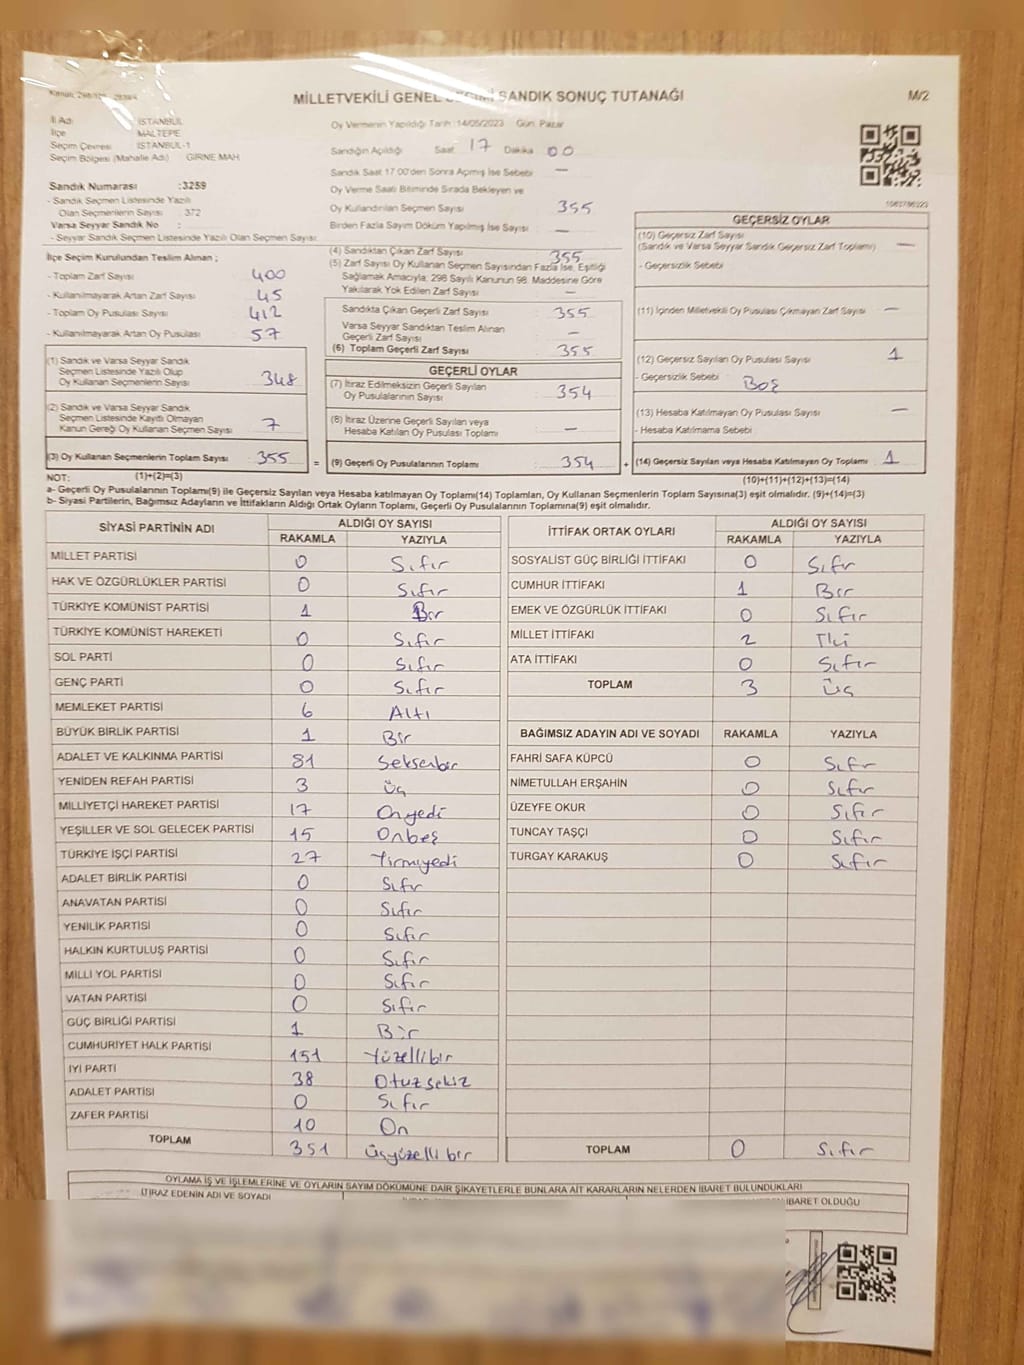 MİLLETVEKİLİ GENEL SEÇİMİ SANDIK SONUÇ TUTANAĞI
M/2
İl Adı : İSTANBUL
İlçe : MALTEPE
Seçim Çevresi : İSTANBUL-1
Seçim Bölgesi (Mahalle Adı) : GİRNE MAH
Sandık Numarası :3259
- Sandık Seçmen Listesinde Yazılı
Olan Seçmenlerin Sayısı : 372
Varsa Seyyar Sandık No :
- Seyyar Sandık Seçmen Listesinde Yazılı Olan Seçmen Sayısı:
İlçe Seçim Kurulundan Teslim Alınan ;
- Toplam Zarf Sayısı : 400
- Kullanılmayarak Artan Zarf Sayısı : 45
- Toplam Oy Pusulası Sayısı : 412
- Kullanılmayarak Artan Oy Pusulası : 57
(1) Sandık ve Varsa Seyyar Sandık
Seçmen Listesinde Yazılı Olup
Oy Kullanan Seçmenlerin Sayısı : 348
(2) Sandık ve Varsa Seyyar Sandık
Seçmen Listesinde Kayıtlı Olmayan
Kanun Gereği Oy Kullanan Seçmen Sayısı : 7
(3) Oy Kullanan Seçmenlerin Toplam Sayısı : 355
(1)+(2)=(3)
Oy Vermenin Yapıldığı Tarih :14/05/2023 Gün: Pazar
Sandığın Açıldığı Saat 17 Dakika 00
Sandık Saat 17.00'den Sonra Açılmış İse Sebebi —
Oy Verme Saati Bitiminde Sırada Bekleyen ve
Oy Kullandırılan Seçmen Sayısı : 355
Birden Fazla Sayım Döküm Yapılmış İse Sayısı : —
(4) Sandıktan Çıkan Zarf Sayısı : 355
(5) Zarf Sayısı Oy Kullanan Seçmen Sayısından Fazla İse, Eşitliği
Sağlamak Amacıyla, 298 Sayılı Kanunun 98. Maddesine Göre
Yakılarak Yok Edilen Zarf Sayısı : —
Sandıkta Çıkan Geçerli Zarf Sayısı : 355
Varsa Seyyar Sandıktan Teslim Alınan
Geçerli Zarf Sayısı : —
(6) Toplam Geçerli Zarf Sayısı : 355
GEÇERLİ OYLAR
(7) İtiraz Edilmeksizin Geçerli Sayılan
Oy Pusulalarının Sayısı : 354
(8) İtiraz Üzerine Geçerli Sayılan veya
Hesaba Katılan Oy Pusulası Toplamı : —
= (9) Geçerli Oy Pusulalarının Toplamı : 354 +
1063786323
GEÇERSİZ OYLAR
(10) Geçersiz Zarf Sayısı
(Sandık ve Varsa Seyyar Sandık Geçersiz Zarf Toplamı) : —
- Geçersizlik Sebebi :
(11) İçinden Milletvekili Oy Pusulası Çıkmayan Zarf Sayısı : —
(12) Geçersiz Sayılan Oy Pusulası Sayısı : 1
- Geçersizlik Sebebi : Boş
(13) Hesaba Katılmayan Oy Pusulası Sayısı : —
- Hesaba Katılmama Sebebi :
(14) Geçersiz Sayılan veya Hesaba Katılmayan Oy Toplamı : 1
(10)+(11)+(12)+(13)=(14)
NOT:
a- Geçerli Oy Pusulalarının Toplamı(9) ile Geçersiz Sayılan veya Hesaba katılmayan Oy Toplamı(14) Toplamları, Oy Kullanan Seçmenlerin Toplam Sayısına(3) eşit olmalıdır. (9)+(14)=(3)
b- Siyasi Partilerin, Bağımsız Adayların ve İttifakların Aldığı Ortak Oyların Toplamı, Geçerli Oy Pusulalarının Toplamına(9) eşit olmalıdır.
SİYASİ PARTİNİN ADI ALDIĞI OY SAYISI
RAKAMLA YAZIYLA
MİLLET PARTİSİ 0 Sıfır
HAK VE ÖZGÜRLÜKLER PARTİSİ 0 Sıfır
TÜRKİYE KOMÜNİST PARTİSİ 1 Bir
TÜRKİYE KOMÜNİST HAREKETİ 0 Sıfır
SOL PARTİ 0 Sıfır
GENÇ PARTİ 0 Sıfır
MEMLEKET PARTİSİ 6 Altı
BÜYÜK BİRLİK PARTİSİ 1 Bir
ADALET VE KALKINMA PARTİSİ 81 Seksenbir
YENİDEN REFAH PARTİSİ 3 üç
MİLLİYETÇİ HAREKET PARTİSİ 17 Onyedi
YEŞİLLER VE SOL GELECEK PARTİSİ 15 Onbeş
TÜRKİYE İŞÇİ PARTİSİ 27 Yirmiyedi
ADALET BİRLİK PARTİSİ 0 Sıfır
ANAVATAN PARTİSİ 0 Sıfır
YENİLİK PARTİSİ 0 Sıfır
HALKIN KURTULUŞ PARTİSİ 0 Sıfır
MİLLİ YOL PARTİSİ 0 Sıfır
VATAN PARTİSİ 0 Sıfır
GÜÇ BİRLİĞİ PARTİSİ 1 Bir
CUMHURİYET HALK PARTİSİ 151 Yüzellibir
İYİ PARTİ 38 Otuzsekiz
ADALET PARTİSİ 0 Sıfır
ZAFER PARTİSİ 10 On
TOPLAM 351 üçyüzellibir
İTTİFAK ORTAK OYLARI ALDIĞI OY SAYISI
RAKAMLA YAZIYLA
SOSYALİST GÜÇ BİRLİĞİ İTTİFAKI 0 Sıfır
CUMHUR İTTİFAKI 1 Bir
EMEK VE ÖZGÜRLÜK İTTİFAKI 0 Sıfır
MİLLET İTTİFAKI 2 İki
ATA İTTİFAKI 0 Sıfır
TOPLAM 3 üç
BAĞIMSIZ ADAYIN ADI VE SOYADI RAKAMLA YAZIYLA
FAHRİ SAFA KÜPCÜ 0 Sıfır
NİMETULLAH ERŞAHİN 0 Sıfır
ÜZEYFE OKUR 0 Sıfır
TUNCAY TAŞÇI 0 Sıfır
TURGAY KARAKUŞ 0 Sıfır
TOPLAM 0 Sıfır
OYLAMA İŞ VE İŞLEMLERİNE VE OYLARIN SAYIM DÖKÜMÜNE DAİR ŞİKAYETLERLE BUNLARA AİT KARARLARIN NELERDEN İBARET BULUNDUKLARI
İTİRAZ EDENİN ADI VE SOYADI
İBARET OLDUĞU